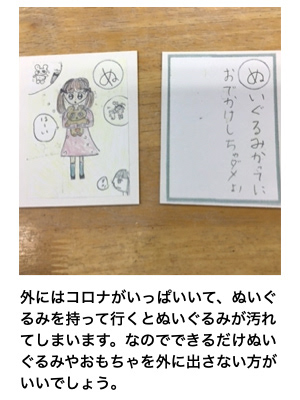 ぬ
はーい
ぬいぐるみ
おでかけしちゃダメ
外にはコロナがいっぱいいて、ぬいぐ
るみを持って行くとぬいぐるみが汚れ
てしまいます。なのでできるだけぬい
ぐるみやおもちゃを外に出さない方が
いいでしょう。